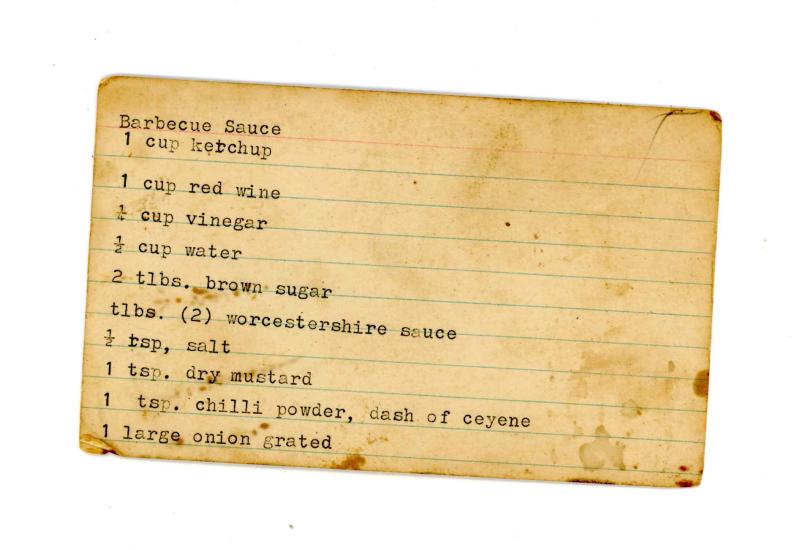 Barbecue Sauce
1 cup ketchup
1 cup red wine
¼ cup vinegar
½ cup water
2 tlbs. brown sugar
tlbs. (2) worcestershire sauce
½ tsp, salt
1 tsp. dry mustard
1 tsp. chilli powder, dash of ceyene
1 large onion grated